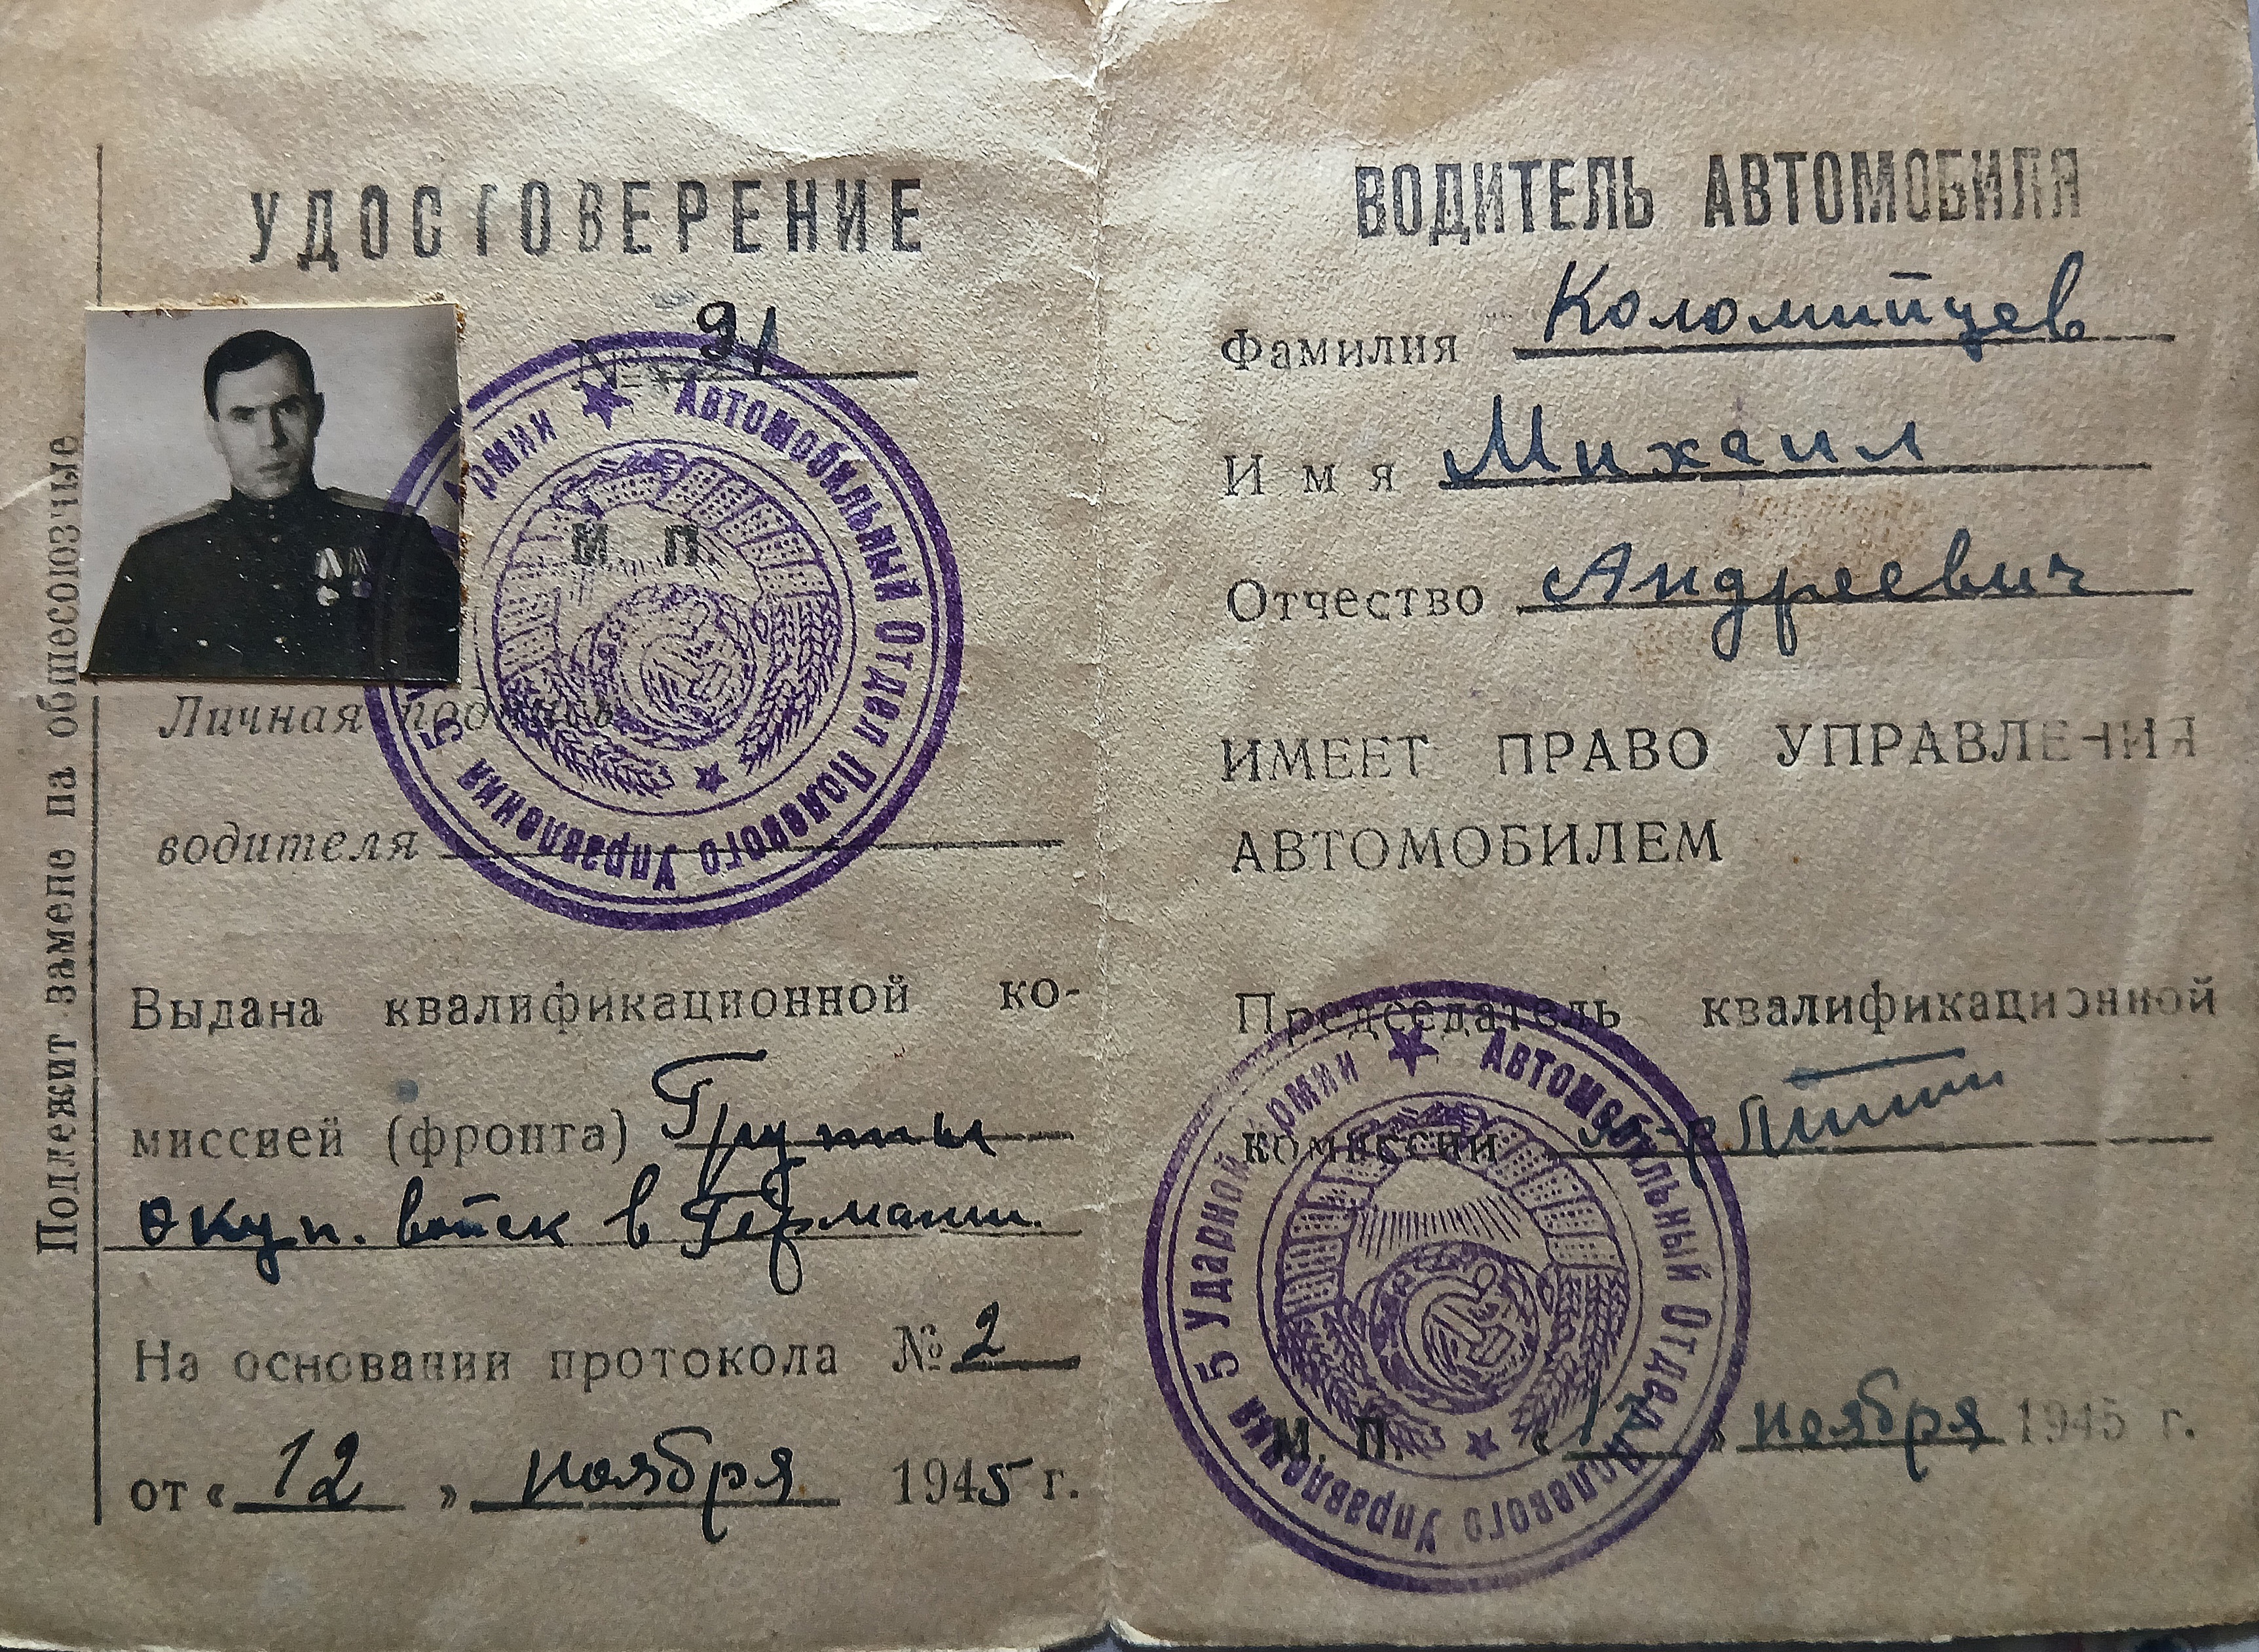 УДОСТОВЕРЕНИЕ
№ 91
М. П.
Автомобильный Отдел Полевого Управления 5 Армии
Личная подпись
водителя
Выдана квалификационной ко-
миссией (фронта) Группы
окуп. войск в Германии.
На основании протокола № 2
от « 12 » ноября 1945 г.
Подлежит замене на общесоюзные
ВОДИТЕЛЬ АВТОМОБИЛЯ
Фамилия Коломийцев
Имя Михаил
Отчество Андреевич
ИМЕЕТ ПРАВО УПРАВЛЕНИЯ
АВТОМОБИЛЕМ
Председатель квалификационной
комиссии
Автомобильный Отдел Полевого Управления 5 Ударной Армии
М. П. « 12 » ноября 1945 г.